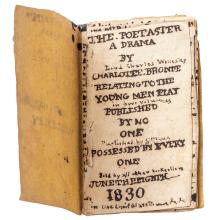 THE POETASTER
A DRAMA
BY
Lord Charles Wellesley
CHARLOTTE BRONTE
RELATING TO THE
YOUNG MEN PLAY
in two volumes
PUBLISHED
BY NO
ONE
Published by
POSSESSED BY EVERY
ONE
Sold by all other Booksellers
JUNE THE EIGHTH
1830